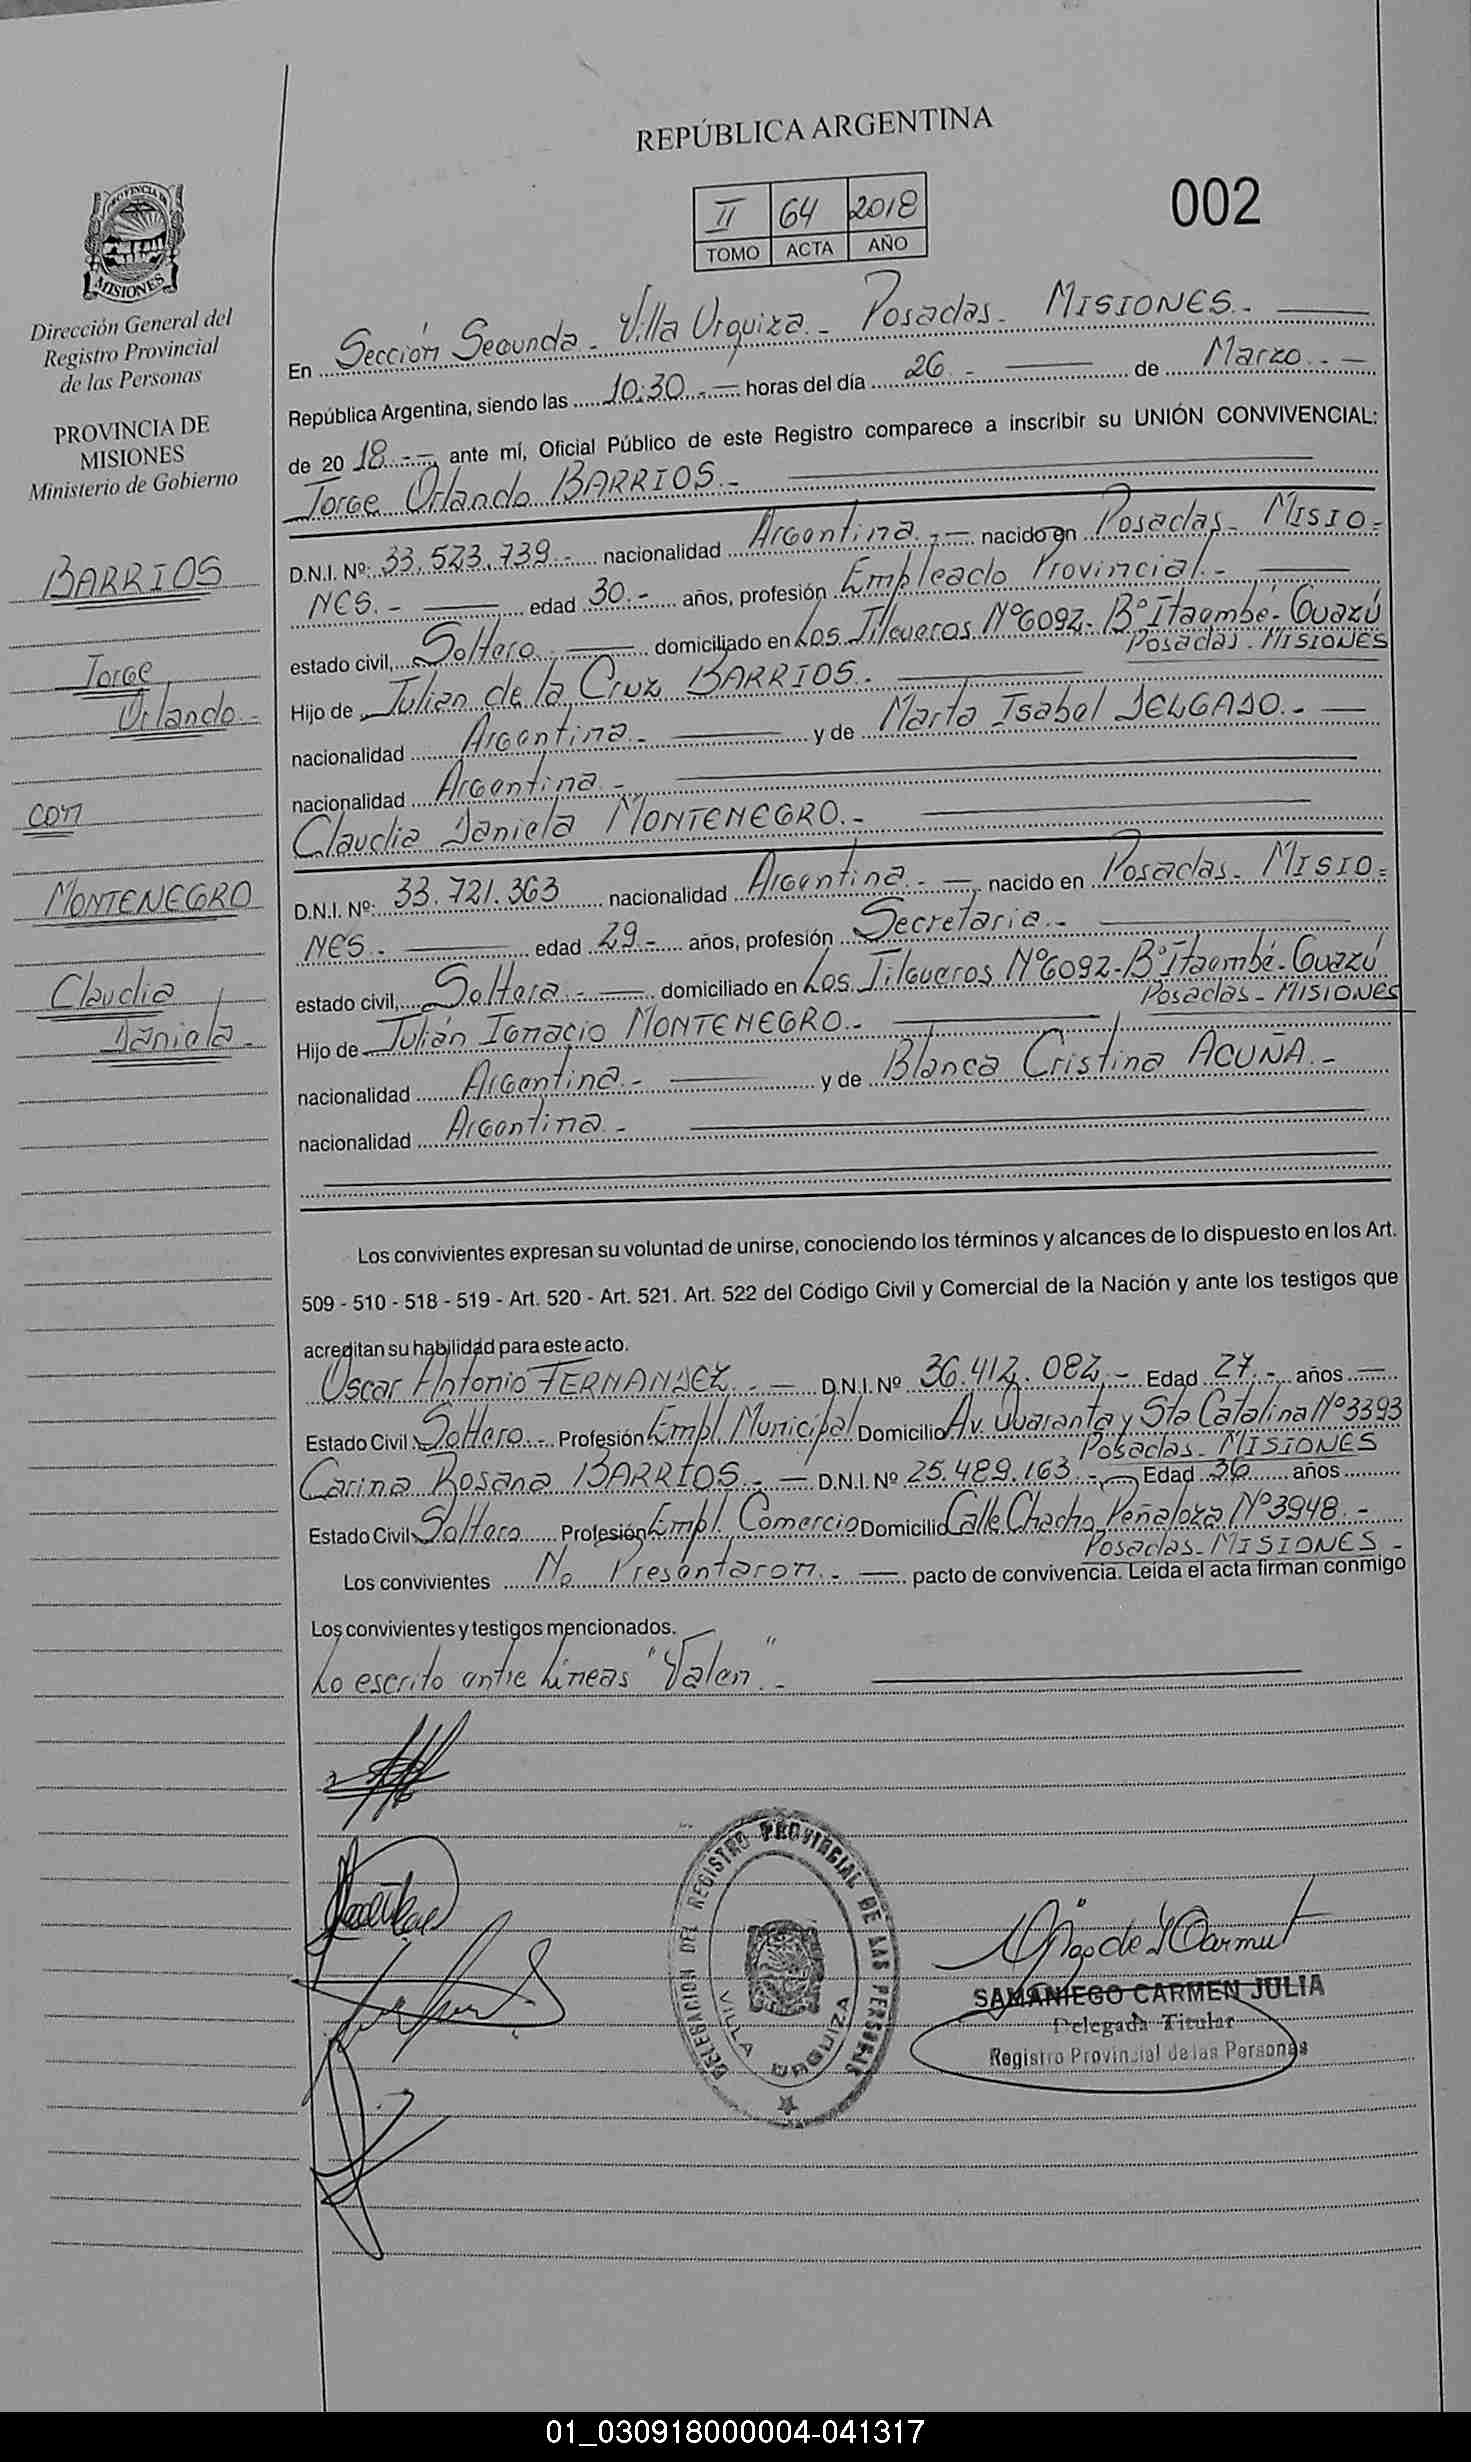 REPÚBLICA ARGENTINA
002
II 64 2018
TOMO ACTA AÑO
PROVINCIA DE
MISIONES
Dirección General del
Registro Provincial
de las Personas
PROVINCIA DE
MISIONES
Ministerio de Gobierno
BARRIOS
Jorge
Orlando.-
con
MONTENEGRO
Claudia
Daniela.-
En Sección Segunda - Villa Urquiza.- Posadas - MISIONES.-
República Argentina, siendo las 10:30.- horas del día 26.- de Marzo.-
de 20 18.- ante mí, Oficial Público de este Registro comparece a inscribir su UNIÓN CONVIVENCIAL:
Jorge Orlando BARRIOS.-
D.N.I. Nº: 33.523.739.- nacionalidad Argentina.- nacido en Posadas - MISIO=
NES.- edad 30.- años, profesión Empleado Provincial.-
estado civil, Soltero.- domiciliado en Los Jilgueros Nº6092- Bº Itaembé-Guazú
Posadas - MISIONES
Hijo de Julian de la Cruz BARRIOS.-
nacionalidad Argentina.- y de Marta Isabel DELGADO.-
nacionalidad Argentina.-
Claudia Daniela MONTENEGRO.-
D.N.I. Nº: 33.721.363 nacionalidad Argentina.- nacido en Posadas - MISIO=
NES.- edad 29.- años, profesión Secretaria.-
estado civil, Soltera.- domiciliado en Los Jilgueros Nº6092-Bº Itaembé-Guazú
Posadas - MISIONES
Hijo de Julián Ignacio MONTENEGRO.-
nacionalidad Argentina.- y de Blanca Cristina ACUÑA.-
nacionalidad Argentina.-
Los convivientes expresan su voluntad de unirse, conociendo los términos y alcances de lo dispuesto en los Art.
509 - 510 - 518 - 519 - Art. 520 - Art. 521. Art. 522 del Código Civil y Comercial de la Nación y ante los testigos que
acreditan su habilidad para este acto.
Oscar Antonio FERNANDEZ.- D.N.I. Nº 36.412.082.- Edad 27.- años
Estado Civil Soltero.- Profesión Empl. Municipal Domicilio Av. Quaranta y Sta Catalina Nº3393
Posadas - MISIONES
Carina Rosana BARRIOS.- D.N.I. Nº 25.489.163.- Edad 36 años
Estado Civil Soltera Profesión Empl. Comercio Domicilio Calle Chacho Peñaloza Nº3948.-
Posadas - MISIONES -
Los convivientes No Presentaron.- pacto de convivencia. Leída el acta firman conmigo
Los convivientes y testigos mencionados.
Lo escrito entre Líneas "Valen".-
DELEGACION DEL REGISTRO PROVINCIAL DE LAS PERSONAS
VILLA URQUIZA
SAMANIEGO CARMEN JULIA
Delegada Titular
Registro Provincial de las Personas
01_030918000004-041317